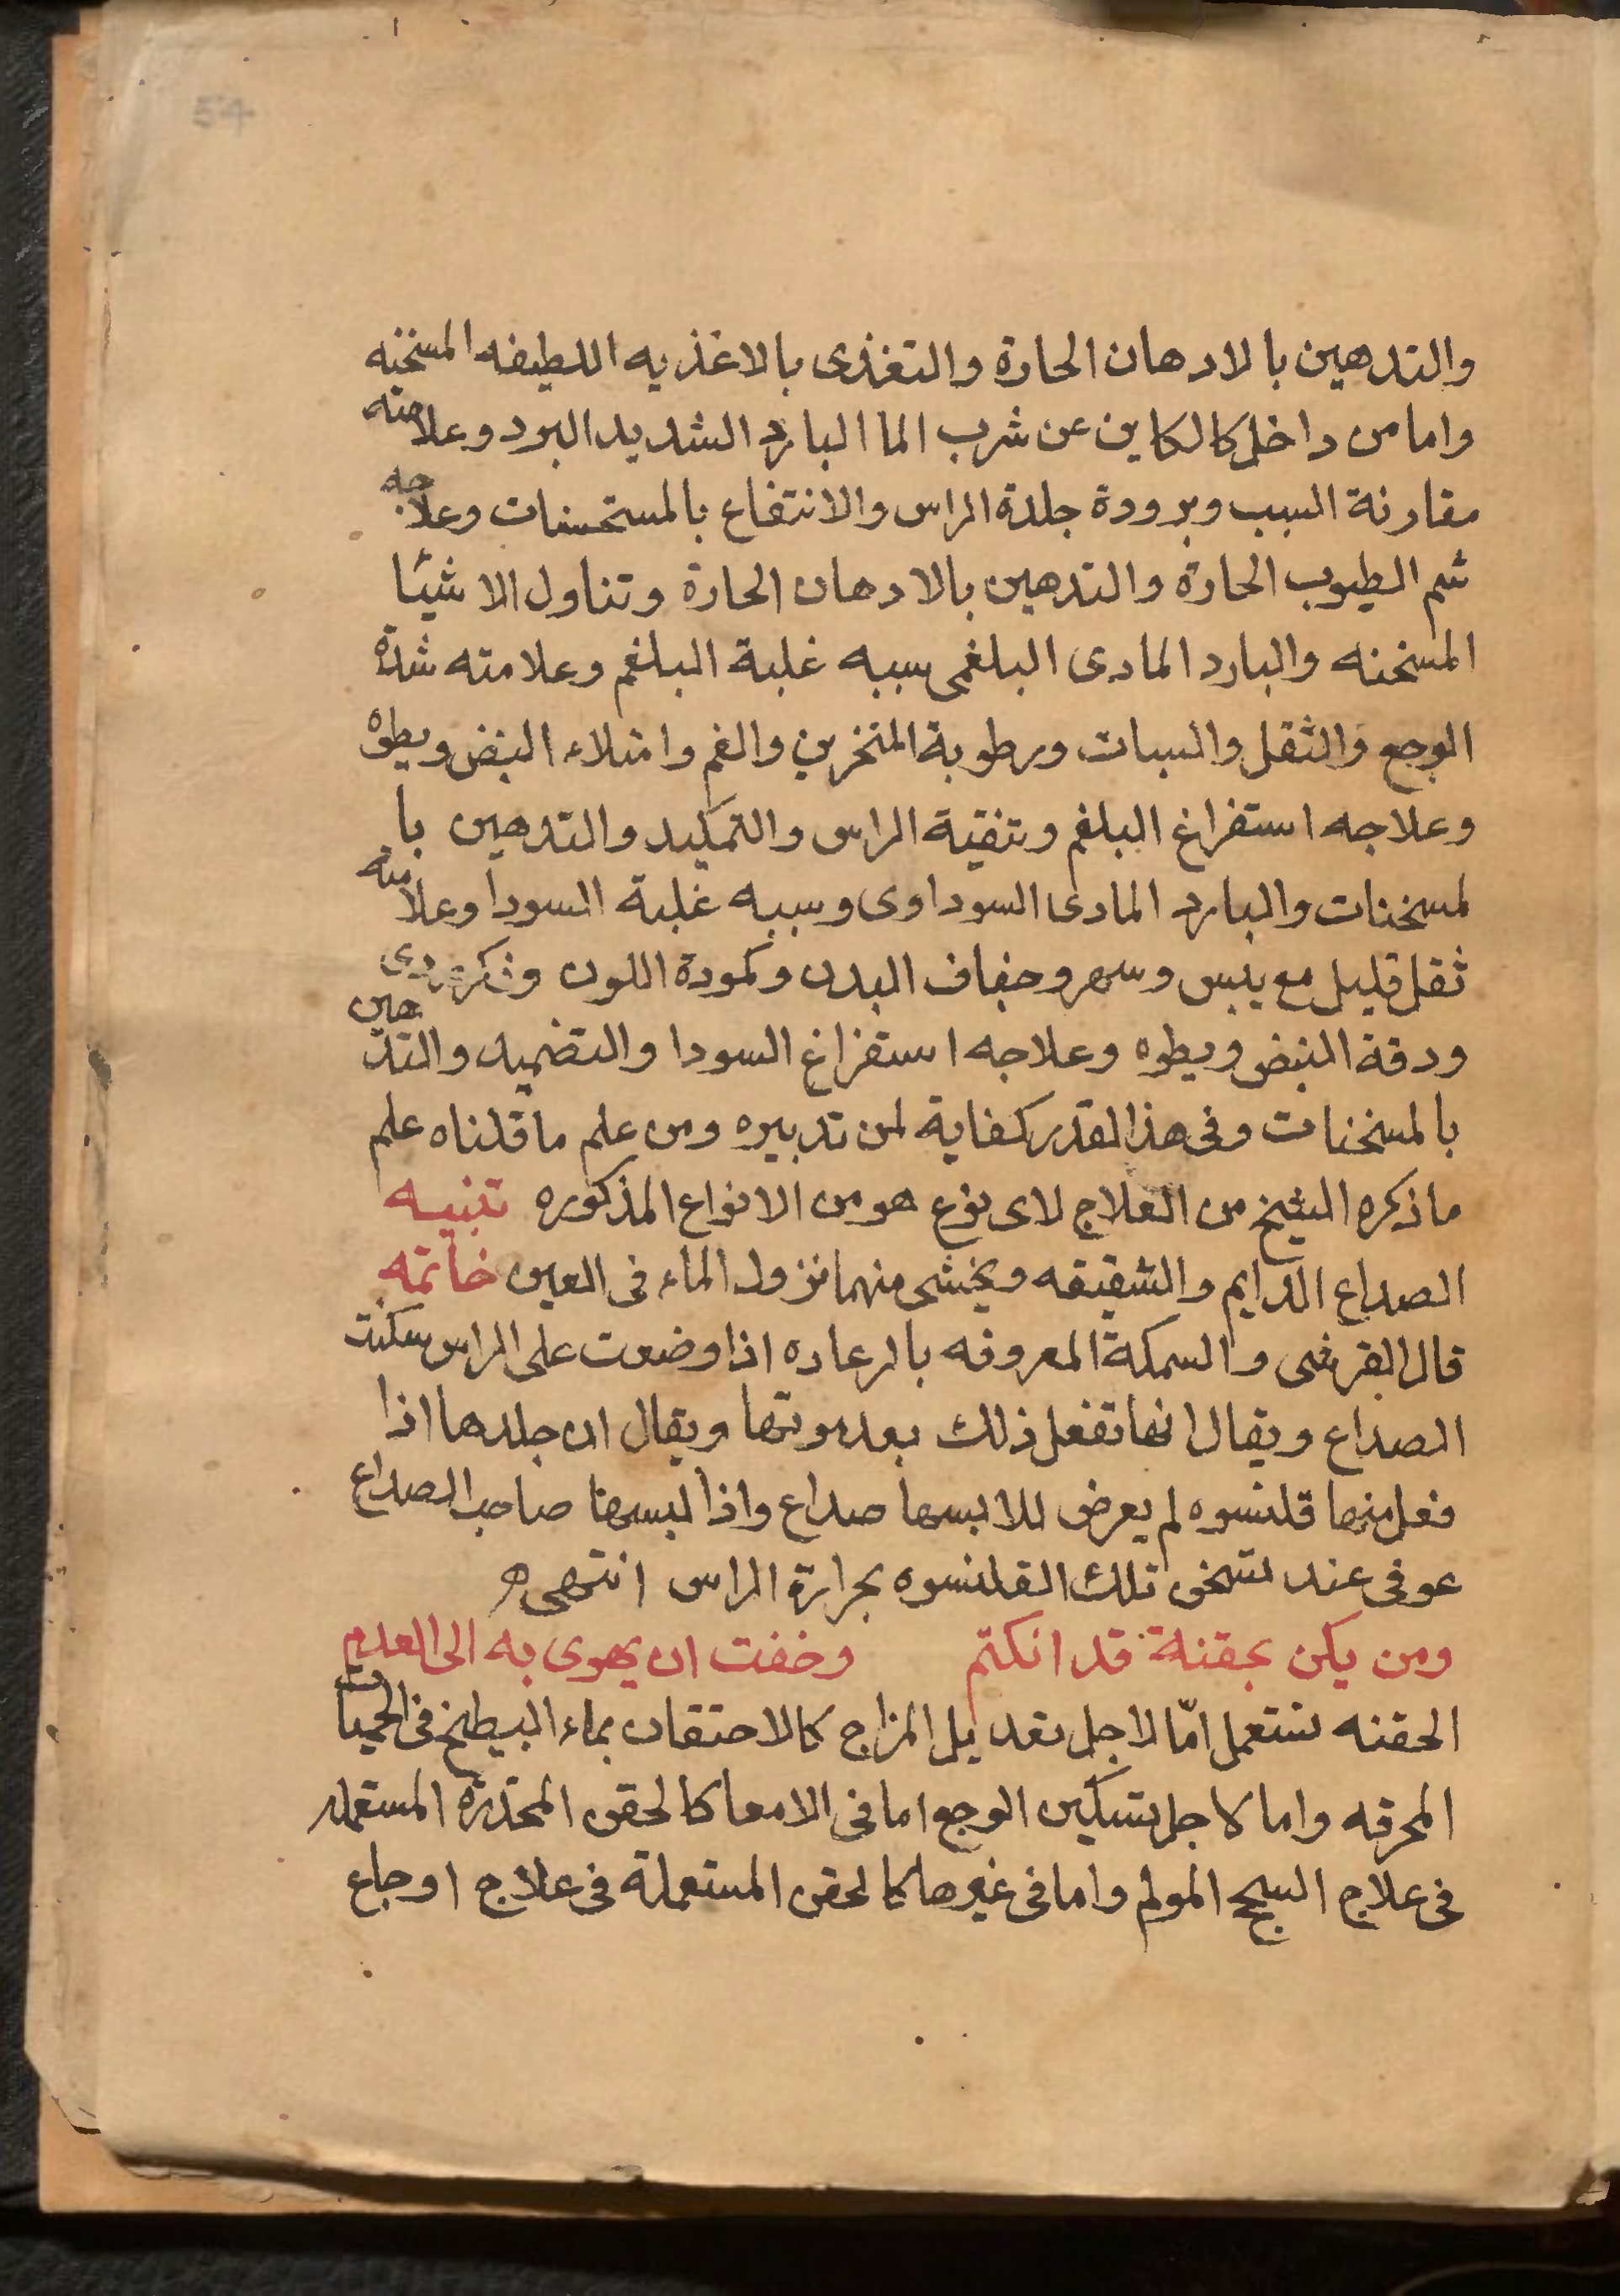 54
والتدهين بالادهان الحارة والتغذى بالاغذيه اللطيفه المسخنه
واما من داخل كالكاين عن شرب الما البارد الشديد البرد وعلامته
مقارنة السبب وبرودة جلدة الراس والانتفاع بالمستحسنات وعلاجه
شم الطيوب الحارة والتدهين بالادهان الحارة وتناول الاشيا
المسخنه والبارد المادى البلغمى سببه غلبة البلغم وعلامته شدة
الوجع والثقل والسبات ورطوبة المنخرين والفم وامتلاء النبض وبطوه
وعلاجه استفراغ البلغم وتنقية الراس والتكميد والتدهين با
لمسخنات والبارد المادى السوداوى وسببه غلبة السودا وعلامته
ثقل قليل مع يبس وسهر وجفاف البدن وكمودة اللون وفكر ردى
ودقة النبض وبطوه وعلاجه استفراغ السودا والتضميد والتدهين
بالمسخنات وفى هذا القدر كفاية لمن تدبيره ومن علم ما قلناه علم
ما ذكره الشيخ من العلاج لاى نوع هو من الانواع المذكوره تنبيه
الصداع الدايم والشقيقه ويخشى منهما نزول الماء فى العين خاتمه
قال القرشى والسمكة المعروفه بالرعاده اذا وضعت على الراس سكنت
الصداع ويقال انها تفعل ذلك بعد موتها ويقال ان جلدها اذا
فعل منها قلنسوه لم يعرض للابسها صداع واذا لبسها صاحب الصداع
عوفى عند تسخن تلك القلنسوه بحرارة الراس انتهى
ومن يكن بحقنة قد انكتم وخفت ان يهوى به الى العدم
الحقنه تستعمل امّا لاجل تعديل المزاج كالاحتقان بماء البطيخ فى الحميات
المحرقه واما لاجل تسكين الوجع اما فى الامعا كالحقن المخدرة المستعمله
فى علاج السحج المولم واما فى غيرها كالحقن المستعملة فى علاج اوجاع